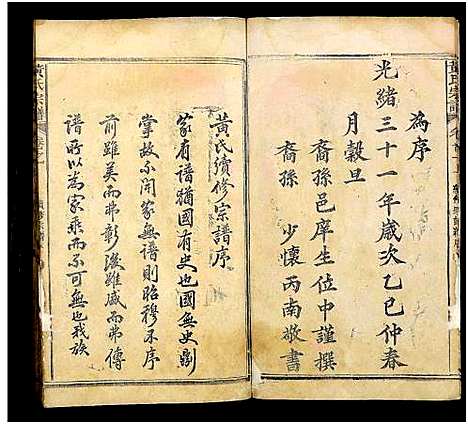 為序
光緒三十一年歲次乙巳仲春
月穀旦
裔孫邑庠生位中謹撰
裔孫 少懷丙南敬書
黃氏宗譜
黃氏續修宗譜序
家有譜猶國有史也國無史則
掌故不開家無譜則昭穆不序
前雖美而弗彰後雖盛而弗傳
譜所以為家乘而不可無也我族
黃氏宗譜